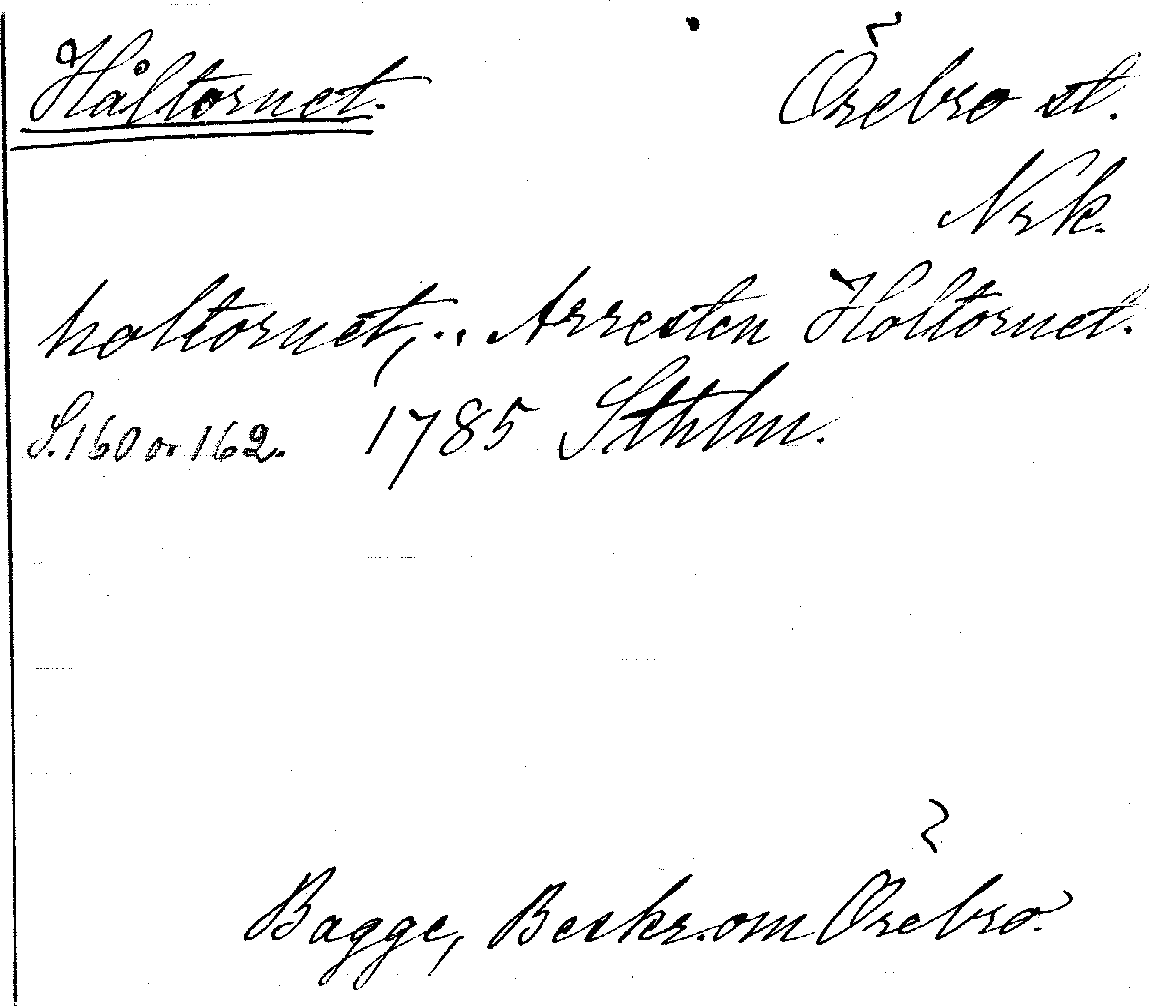 Håltornet. Örebro st.
Nrk.
holtornet, .. Arresten Holtornet.
S. 160 o. 162. 1785 Sthlm.
Bagge, Beskr. om Örebro.